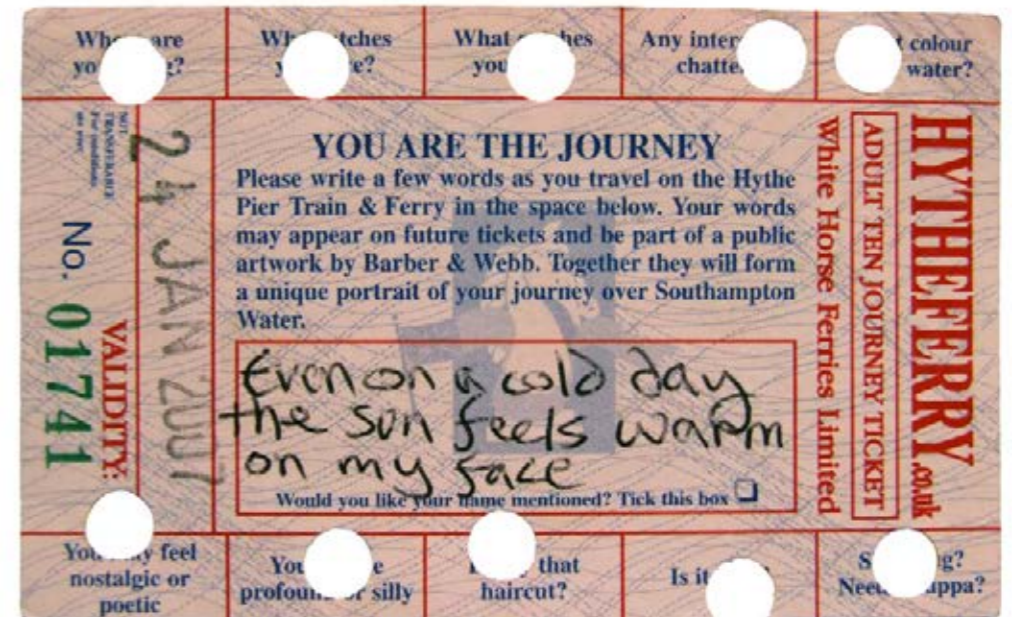 are
yo
?
Wh
tches
e?
What
hes
you
Any
chatte
colour
water?
NOT
TRANSFERABLE
For conditions
see over.
24 JAN 2007
No. 01741
VALIDITY:
YOU ARE THE JOURNEY
Please write a few words as you travel on the Hythe
Pier Train & Ferry in the space below. Your words
may appear on future tickets and be part of a public
artwork by Barber & Webb. Together they will form
a unique portrait of your journey over Southampton
Water.
Even on a cold day
the sun feels warm
on my face
Would you like your name mentioned? Tick this box
White Horse Ferries Limited
ADULT TEN JOURNEY TICKET
HYTHEFERRY.co.uk
You may feel
nostalgic or
poetic
You
e
profound or silly
that
haircut?
Is it
S
g?
Need
uppa?